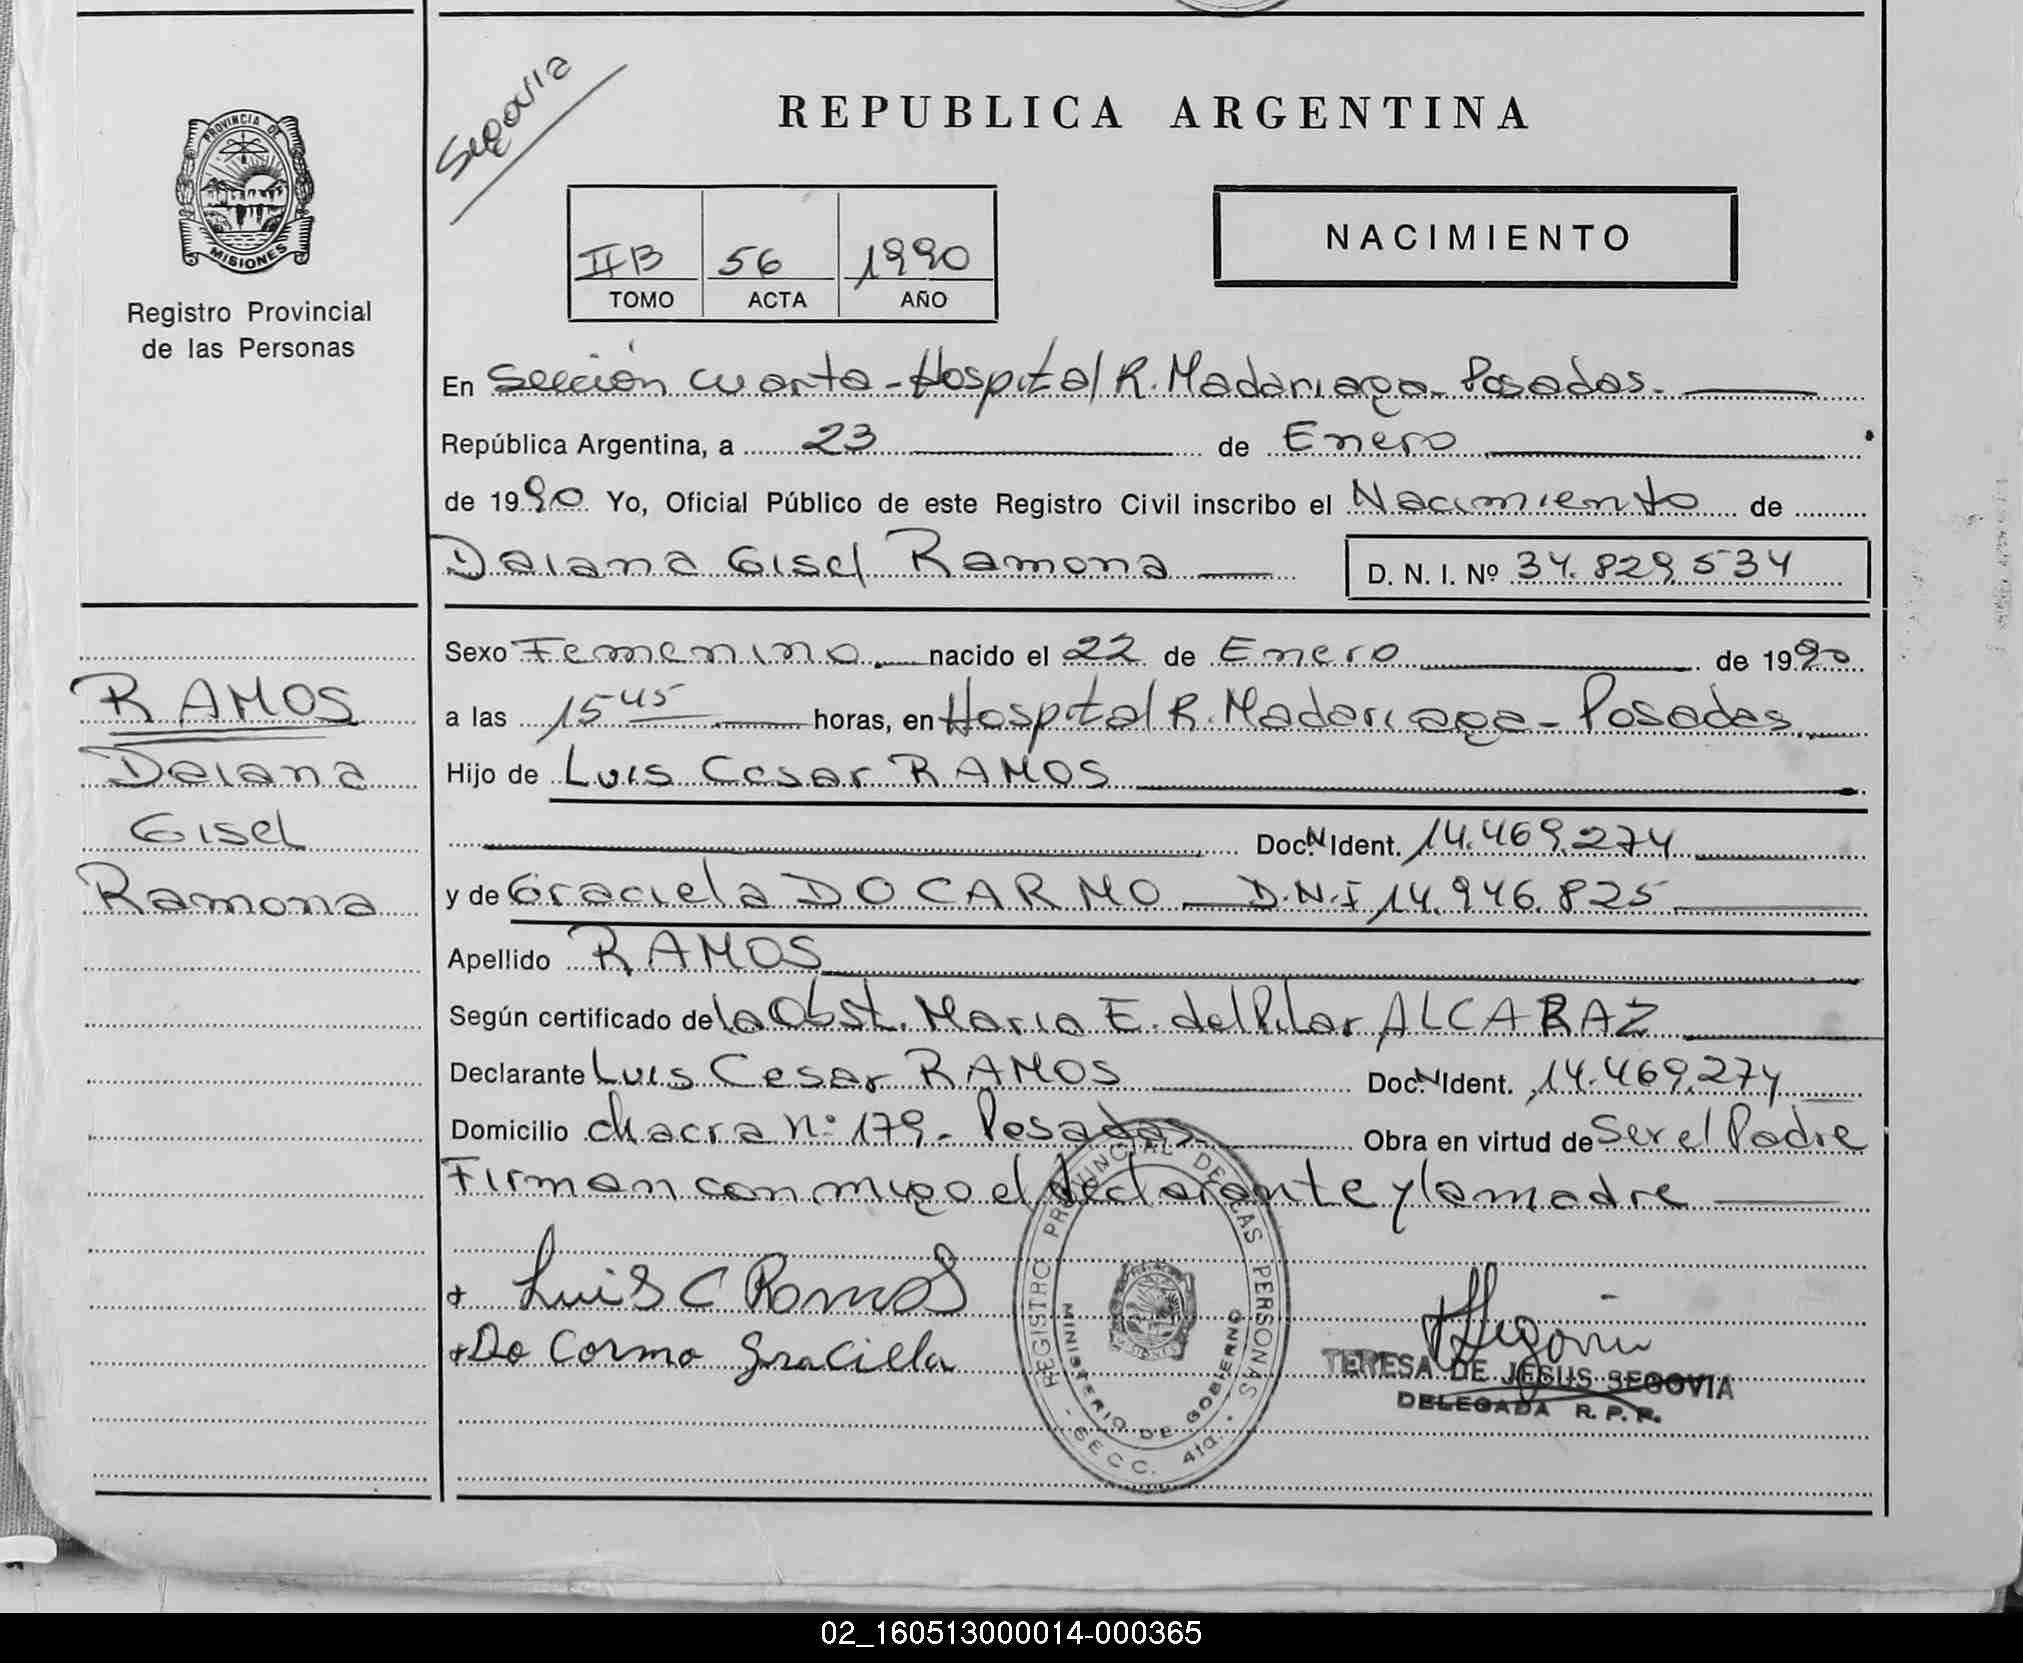 PROVINCIA DE
MISIONES
Registro Provincial
de las Personas
RAMOS
Daiana
Gisel
Ramona
Segovia
REPUBLICA ARGENTINA
II B 56 1990
TOMO ACTA AÑO
NACIMIENTO
En Sección cuarta - Hospital R. Madariaga - Posadas.
República Argentina, a 23 de Enero
de 1990 Yo, Oficial Público de este Registro Civil inscribo el Nacimiento de
Daiana Gisel Ramona D. N. I. Nº 34.829534
Sexo Femenino. nacido el 22 de Enero de 1990
a las 15 45 horas, en Hospital R. Madariaga - Posadas.
Hijo de Luis Cesar RAMOS
Doc. N Ident. 14.469.274
y de Graciela DO CARMO D.N.I 14.946.825
Apellido RAMOS
Según certificado de la Obst. Maria E. del Pilar ALCARAZ
Declarante Luis Cesar RAMOS Doc. N Ident. 14.469.274
Domicilio chacra nº 179 - Posadas Obra en virtud de Ser el Padre
Firman conmigo el declarante y la madre
+ Luis C Ramos
+ Do Carmo Graciela
REGISTRO PROVINCIAL DE LAS PERSONAS
MINISTERIO DE GOBIERNO
- SECC. 4ta. -
MISIONES
Segovia
TERESA DE JESUS SEGOVIA
DELEGADA R. P. P.
02_160513000014-000365